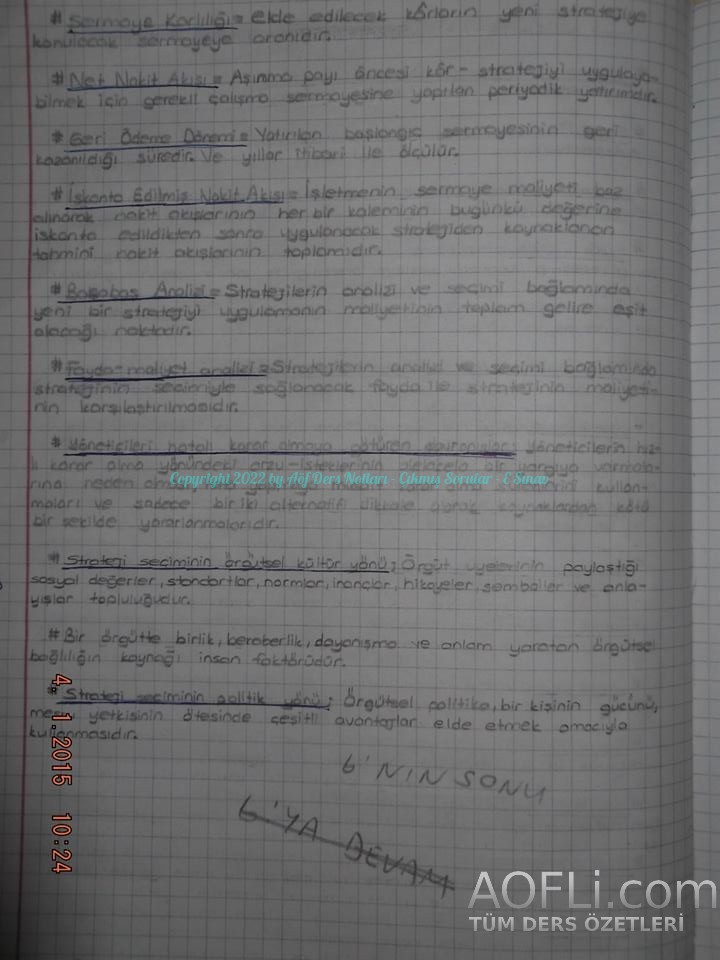 # Sermaye Karlılığı = elde edilecek kârların yeni stratejiye
konulacak sermayeye oranıdır.
# Net Nakit Akışı = Aşınma payı öncesi kâr - stratejiyi uygulaya-
bilmek için gerekli çalışma sermayesine yapılan periyodik yatırımdır.
# Geri Ödeme Dönemi = Yatırılan başlangıç sermayesinin geri
kazanıldığı süredir. Ve yıllar itibari ile ölçülür.
# İskonto Edilmiş Nakit Akışı = İşletmenin sermaye maliyeti baz
alınarak nakit akışlarının her bir kaleminin bugünkü değerine
iskonto edildikten sonra uygulanacak stratejiden kaynaklanan
tahmini nakit akışlarının toplamıdır.
# Başabaş Analizi = Stratejilerin analizi ve seçimi bağlamında
yeni bir stratejiyi uygulamanın maliyetinin toplam gelire eşit
olacağı noktadır.
# Fayda-maliyet analizi = Stratejilerin analizi ve seçimi bağlamında
stratejinin seçimiyle sağlanacak fayda ile stratejinin maliyeti-
nin karşılaştırılmasıdır.
# Yöneticileri hatalı karar almaya götüren davranışlar; Yöneticilerin hız-
lı karar alma yönündeki arzu-isteklerinin alelacele bir yargıya varmala-
rına neden olması, kullan-
maları ve sadece bir iki alternatifi dikkate alarak kaynaklardan kötü
bir şekilde yararlanmalarıdır.
Copyright 2022 by Aöf Ders Notları - Çıkmış Sorular - E Sınav
# Strateji seçiminin örgütsel kültür yönü; Örgüt üyelerinin paylaştığı
sosyal değerler, standartlar, normlar, inançlar, hikayeler, semboller ve anla-
yışlar topluluğudur.
# Bir örgütte birlik, beraberlik, dayanışma ve anlam yaratan örgütsel
bağlılığın kaynağı insan faktörüdür.
# Strateji seçiminin politik yönü; Örgütsel politika, bir kişinin gücünü,
meşru yetkisinin ötesinde çeşitli avantajlar elde etmek amacıyla
kullanmasıdır.
6'NIN SONU
6'YA DEVAM
4.1.2015 10:24
AOFLi.com
TÜM DERS ÖZETLERİ